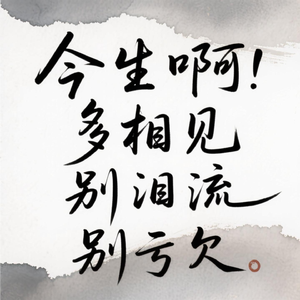 今生啊！
多相见
别泪流
别亏欠。